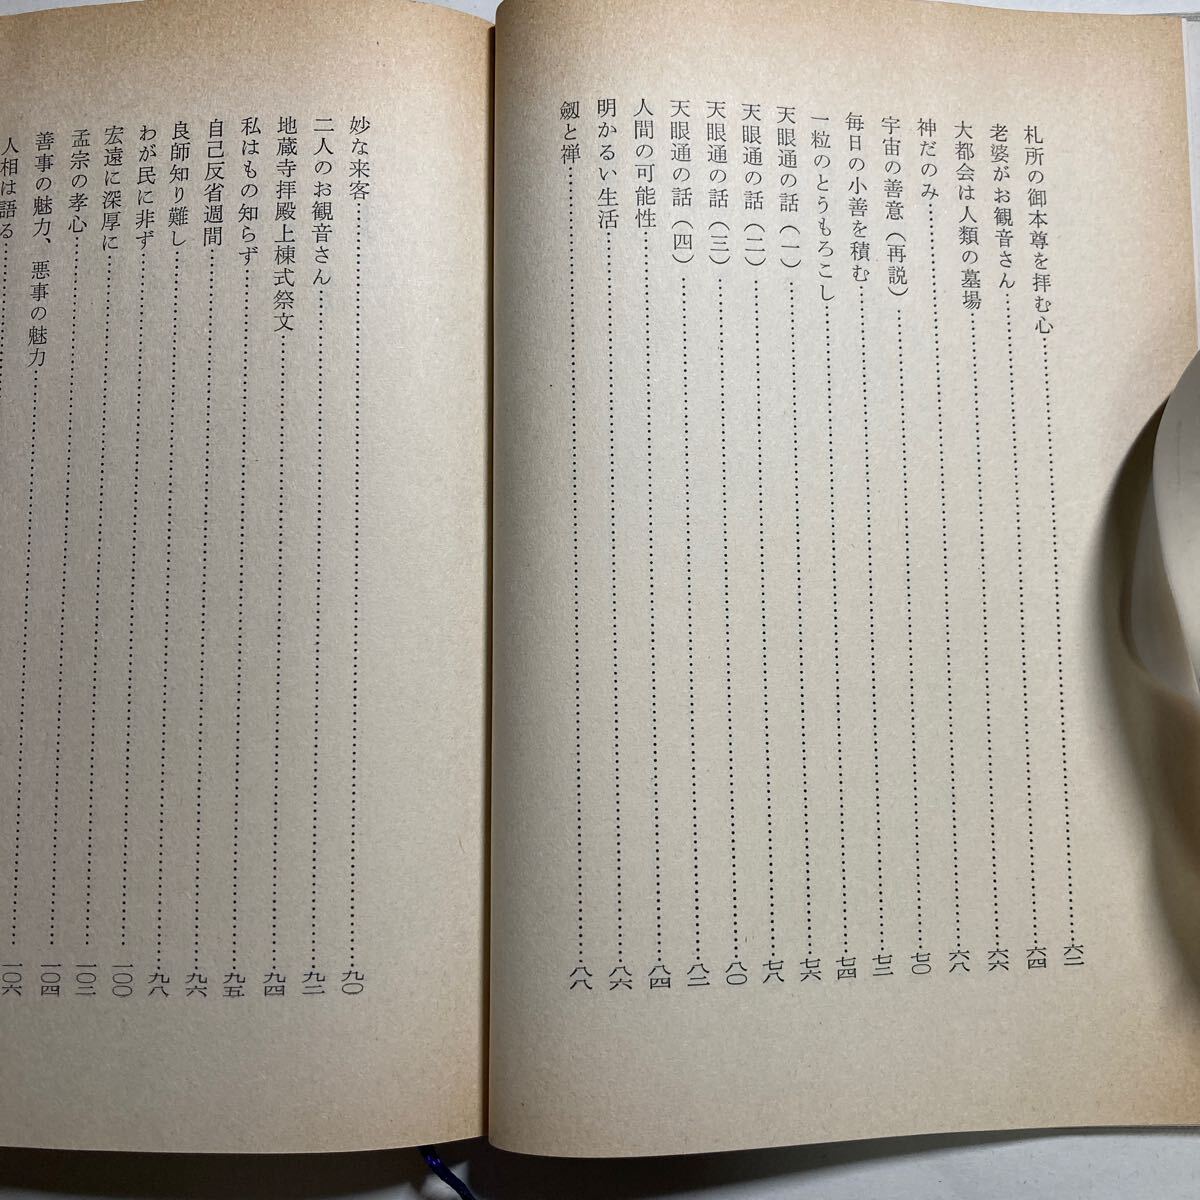 札所の御本尊を拝む心……六二
老婆がお観音さん……六四
大都会は人類の墓場……六六
神だのみ……六八
宇宙の善意(再説)……七〇
毎日の小善を積む……七二
一粒のとうもろこし……七四
天眼通の話(一)……七六
天眼通の話(二)……七八
天眼通の話(三)……八〇
天眼通の話(四)……八二
人間の可能性……八四
明かるい生活……八六
剱と禅……八八
妙な来客……九〇
二人のお観音さん……九二
地蔵寺拝殿上棟式祭文……九四
私はもの知らず……九五
自己反省週間……九六
良師知り難し……九八
わが民に非ず……一〇〇
宏遠に深厚に……一〇二
孟宗の孝心……一〇四
善事の魅力、悪事の魅力……一〇六
人相は語る……